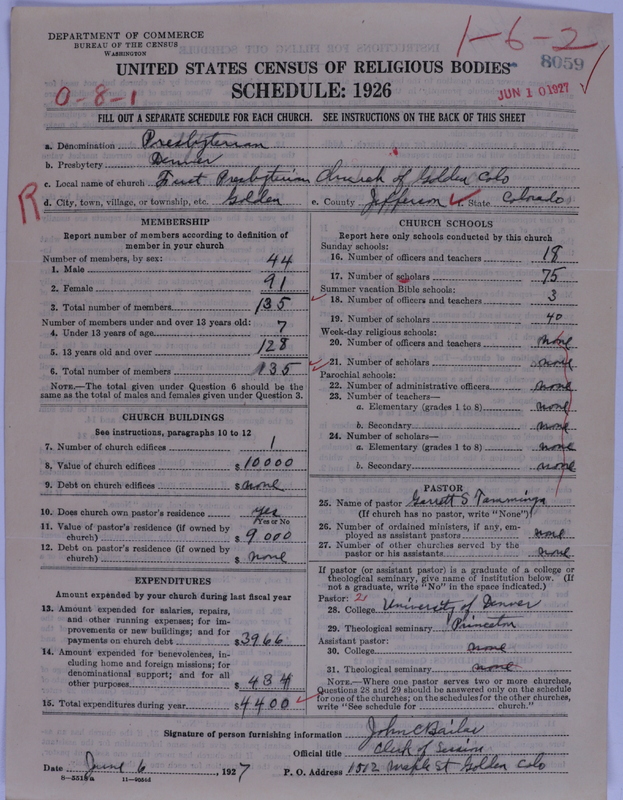 DEPARTMENT OF COMMERCE
BUREAU OF THE CENSUS
WASHINGTON
1-6-2
8059
UNITED STATES CENSUS OF RELIGIOUS BODIES
0-8-1
SCHEDULE: 1926
JUN 10 1927
FILL OUT A SEPARATE SCHEDULE FOR EACH CHURCH. SEE INSTRUCTIONS ON THE BACK OF THIS SHEET
a. Denomination Presbyterian
b. Presbytery Denver
c. Local name of church First Presbyterian Church of Golden Colo
R
d. City, town, village, or township, etc. Golden e. County Jefferson f. State Colorado
MEMBERSHIP
Report number of members according to definition of
member in your church
Number of members, by sex:
1. Male 44
2. Female 91
3. Total number of members 135
Number of members under and over 13 years old:
4. Under 13 years of age 7
5. 13 years old and over 128
6. Total number of members 135
NOTE.—The total given under Question 6 should be
same as the total of males and females given under Question 3.
CHURCH BUILDINGS
See instructions, paragraphs 10 to 12
7. Number of church edifices 1
8. Value of church edifices $10000
9. Debt on church edifices $none
10. Does church own pastor's residence? Yes
Yes or No
11. Value of pastor's residence (if owned by
church) $9000
12. Debt on pastor's residence (if owned by
church) $none
EXPENDITURES
Amount expended by your church during last fiscal year
13. Amount expended for salaries, repairs,
and other running expenses; for im-
provements or new buildings; and for
payments on church debt $3966
14. Amount expended for benevolences, in-
cluding home and foreign missions; for
denominational support; and for all
other purposes $434
15. Total expenditures during year $4400
CHURCH SCHOOLS
Report here only schools conducted by this church
Sunday schools:
16. Number of officers and teachers 18
17. Number of scholars 75
Summer vacation Bible schools:
18. Number of officers and teachers 3
19. Number of scholars 40
Week-day religious schools:
20. Number of officers and teachers none
21. Number of scholars none
Parochial schools:
22. Number of administrative officers none
23. Number of teachers—
a. Elementary (grades 1 to 8) none
b. Secondary none
24. Number of scholars—
a. Elementary (grades 1 to 8) none
b. Secondary none
PASTOR
25. Name of pastor Garrett S Tamminga
(If church has no pastor, write "None")
26. Number of ordained ministers, if any, em-
ployed as assistant pastors none
27. Number of other churches served by the
pastor or his assistants none
If pastor (or assistant pastor) is a graduate of a college or
theological seminary, give name of institution below. (If
not a graduate, write "No" in the space indicated.)
Pastor: 21
28. College University of Denver
29. Theological seminary Princeton
Assistant pastor:
30. College none
31. Theological seminary none
NOTE.—Where one pastor serves two or more churches,
Questions 28 and 29 should be answered only on the schedule
for one of the churches; on the schedules for the other churches,
write "See schedule for church."
Signature of person furnishing information John C Bailar
Official title Clerk of Session
Date June 6, 1927 P. O. Address 1512 Maple St Golden Colo
8-5518a 11-9056d